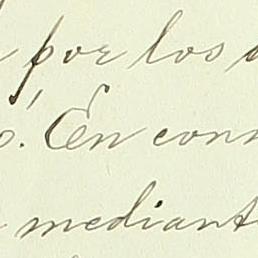 por los
o. En con
mediant